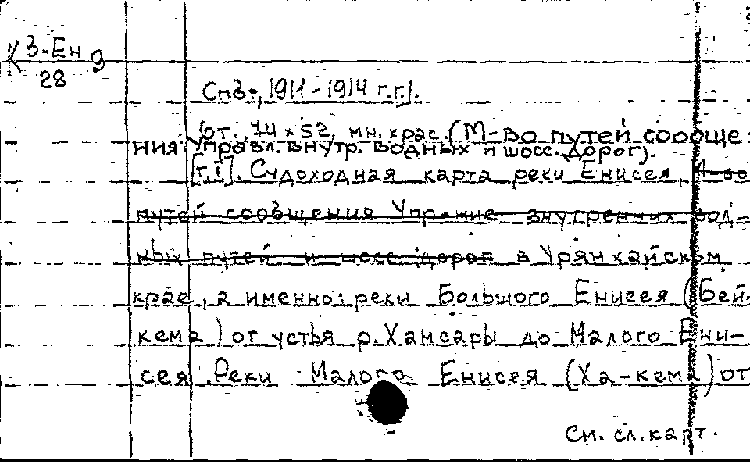 К 3-Ен 9
28
Спб., 1911-1914 г.г.].
от. 74 x 52, мн. крас. (М-во путей сообще-
ния Управл. внутр. водных и шосс. дорог).
[т.1]. Судоходная карта реки Енисея,
путей сообщения Упр-ние внутренних вод-
ных путей и шосс. дорог в Урянхайском
крае, а именно: реки Большого Енисея (Бей-
кема) от устья р. Хамсары до Малого Ени-
сея. Реки Малого Енисея (Ха-кема) от
См. сл. карт.